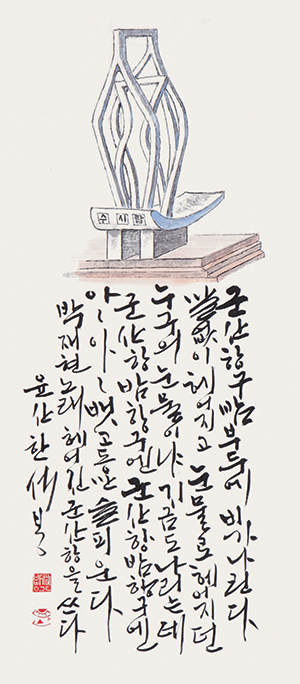 수시탑
군산항구 밤부두에 비가나린다.
헤어지고 눈물로 헤어지던
누구의 눈물이냐 지금도 나리는데
군산항 밤항구엔 군산항밤항구엔
아~아~ 뱃고동만 슬피운다
박재현노래 헤어진군산항을 쓰다
윤산 한